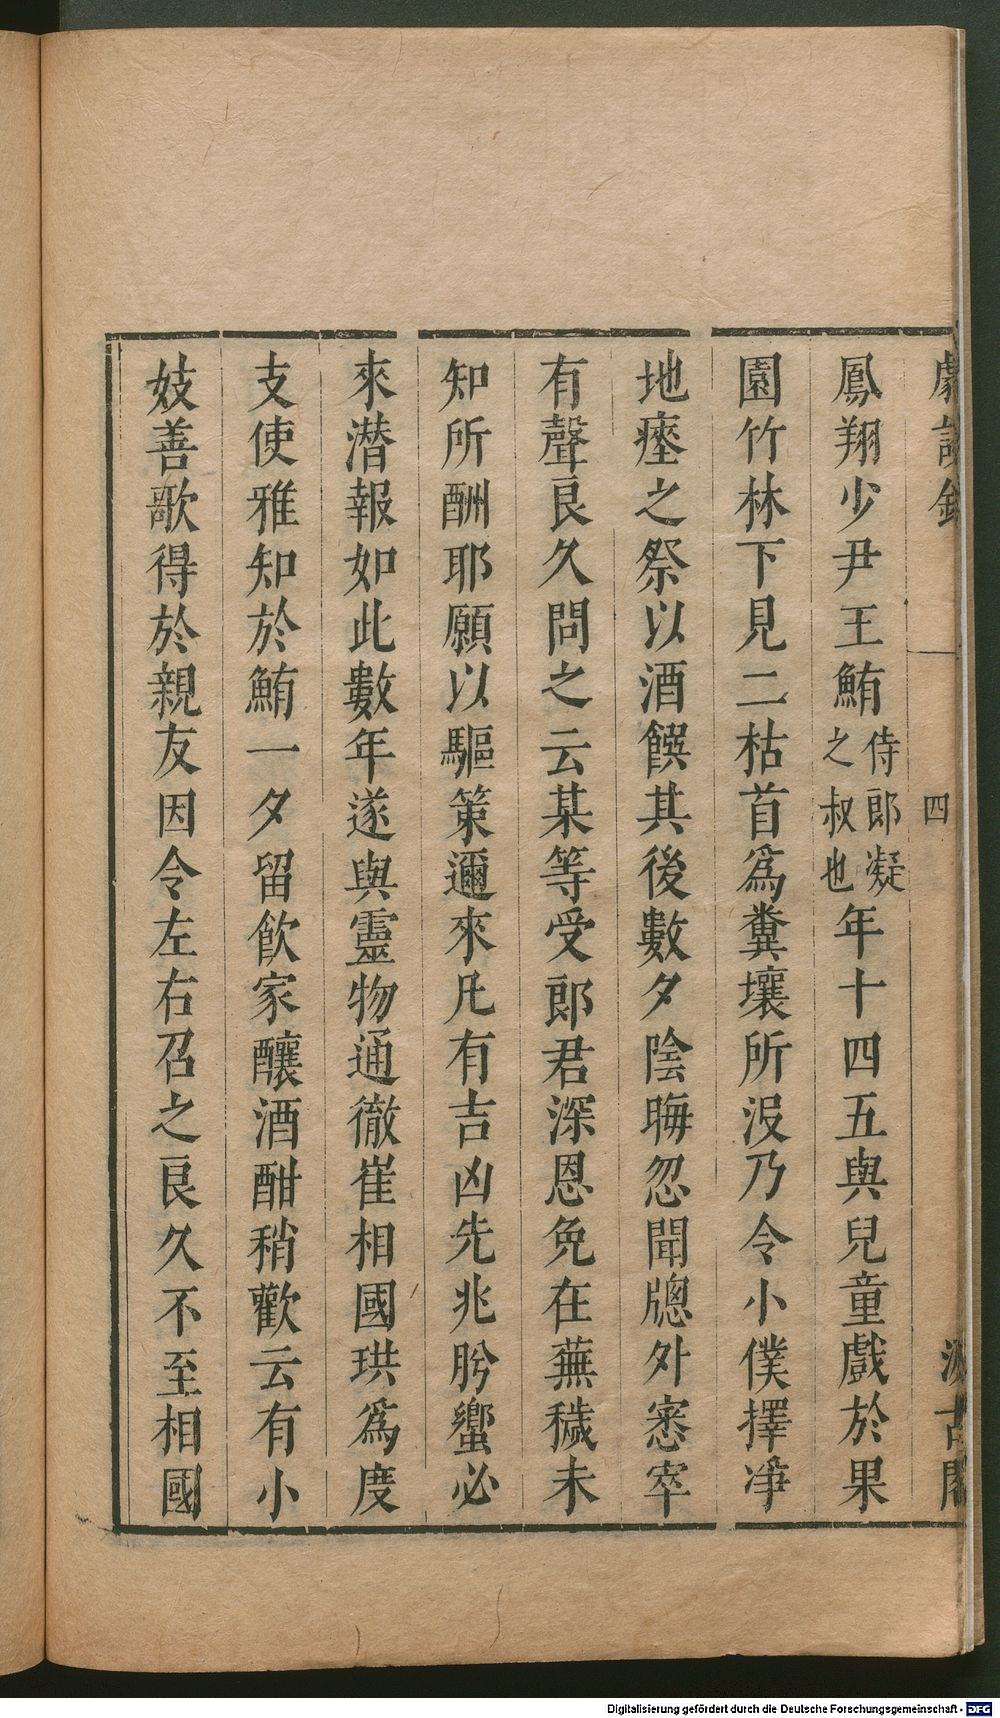 劇談錄
四
汲古閣
鳳翔少尹王鮪侍郎凝之叔也年十四五與兒童戲於果
園竹林下見二枯首爲糞壤所沒乃令小僕擇淨
地瘞之祭以酒饌其後數夕陰晦忽聞牕外窸窣
有聲良久問之云某等受郎君深恩免在蕪穢未
知所酬耶願以驅策邇來凡有吉凶先兆肹蠁必
來潜報如此數年遂與靈物通徹崔相國珙爲度
支使雅知於鮪一夕留飲家釀酒酣稍歡云有小
妓善歌得於親友因令左右召之良久不至相國
Digitalisierung gefördert durch die Deutsche Forschungsgemeinschaft - DFG